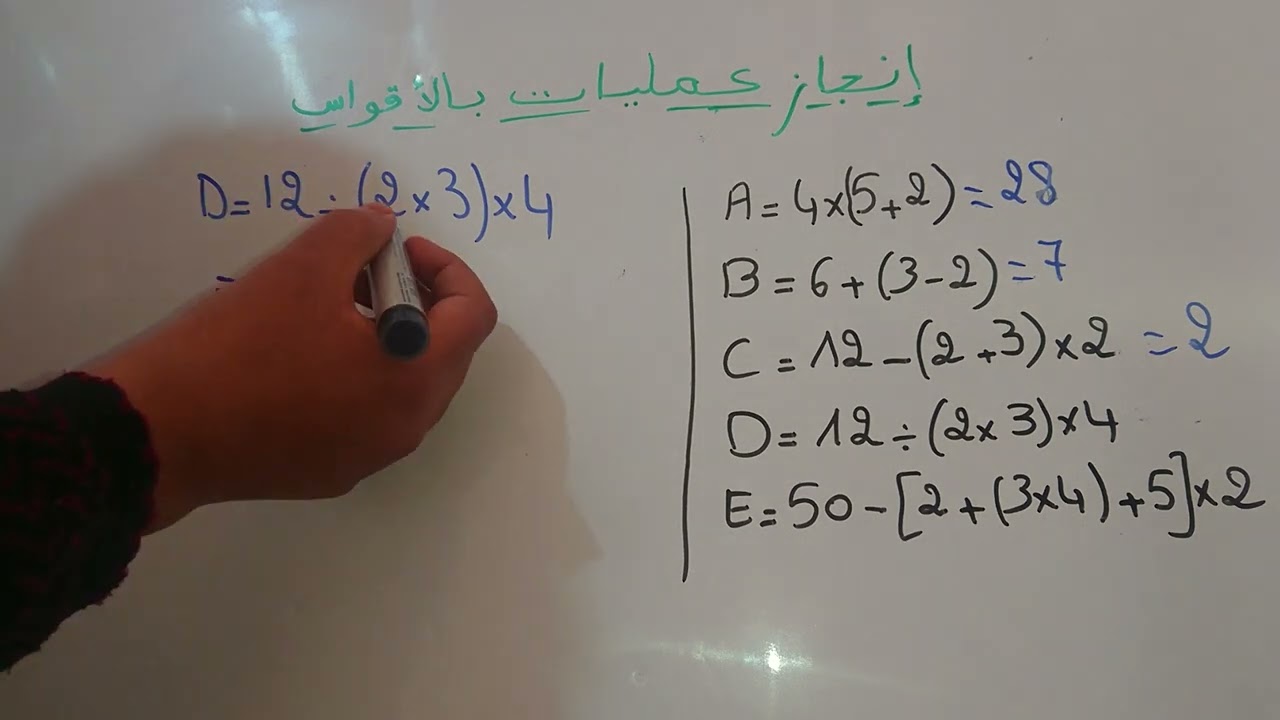 إنجاز عمليات بالأقواس
D = 12 ÷ (2 × 3) × 4
=
A = 4 × (5 + 2) = 28
B = 6 + (3 - 2) = 7
C = 12 - (2 + 3) × 2 = 2
D = 12 ÷ (2 × 3) × 4
E = 50 - [2 + (3 × 4) + 5] × 2